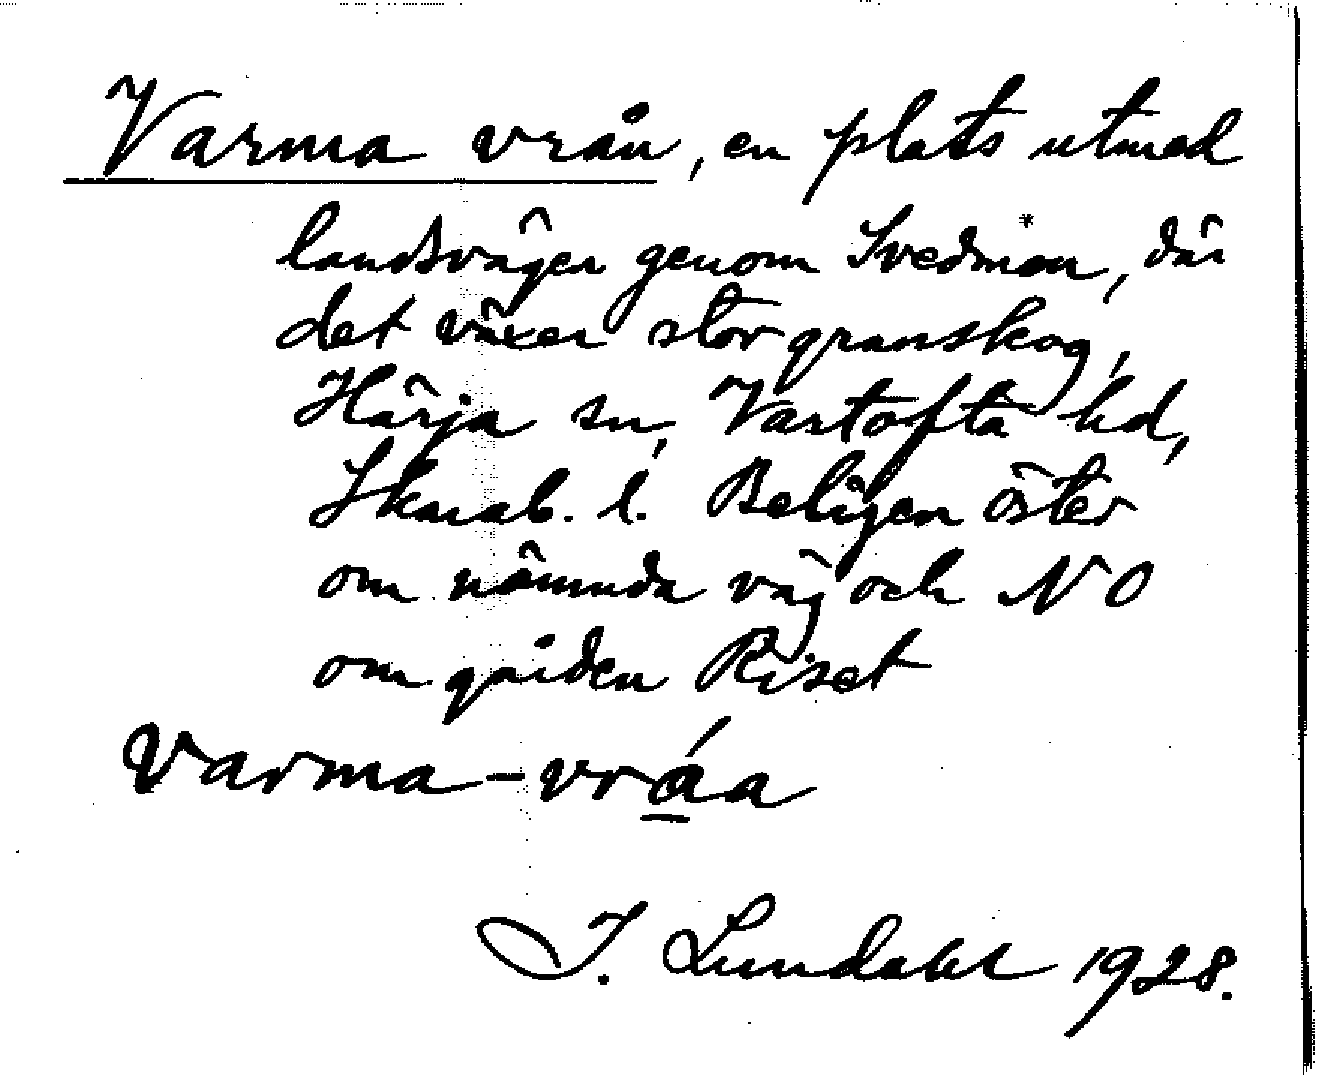 Varma vrån, en plats utmed
landsvägen genom Svedmon, där
det växer stor granskog,
Härja sn, Vartofta hd,
Skarab. l. Belägen öster
om nämnda väg och NO
om gården Riset
Varma-vráa
I. Lundahl 1928.